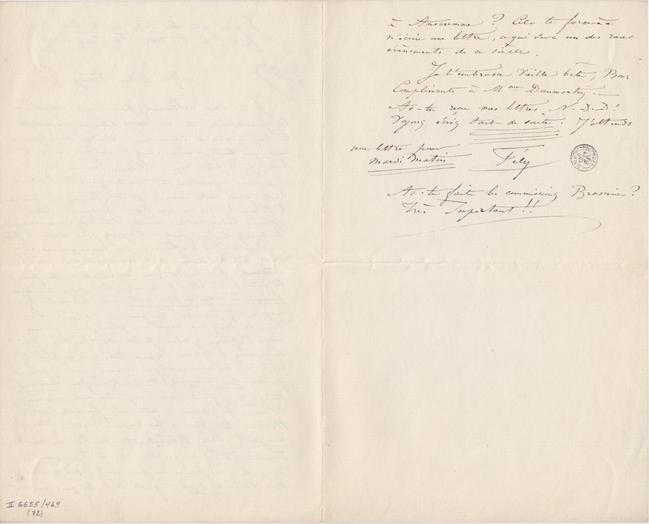 à Anseremme ? Cela te forcera
m'écrire une lettre, ce qui sera un des rares
évènements de ce siècle.
Je t'embrasse Vieille bête, Bons
Compliments à Mme Dommartin.
As-tu reçu mes lettres N. D. D!
Voyons écris tout de suite ! J'attends
une lettre pour
Mardi Matin
Fély
As-tu fait la commission Brasserie ?
Très Important !!
II 6655/469
(72)